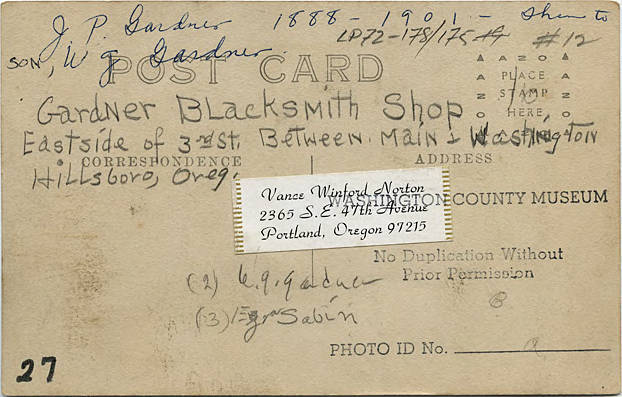 J. P. Gardner 1888-1901 - then to
SON, W G Gardner LP72-178/175 #12
POST CARD
AZO
PLACE
STAMP
HERE
Gardner Blacksmith Shop
Eastside of 3rd St. Between Main & Washington
CORRESPONDENCE ADDRESS
Hillsboro, Oreg.
Vance Winford Norton
2365 S.E. 47th Avenue
Portland, Oregon 97215
WASHINGTON COUNTY MUSEUM
No Duplication Without
Prior Permission
(2) W.G. Gardner
(3) Sabin
PHOTO ID No.
27